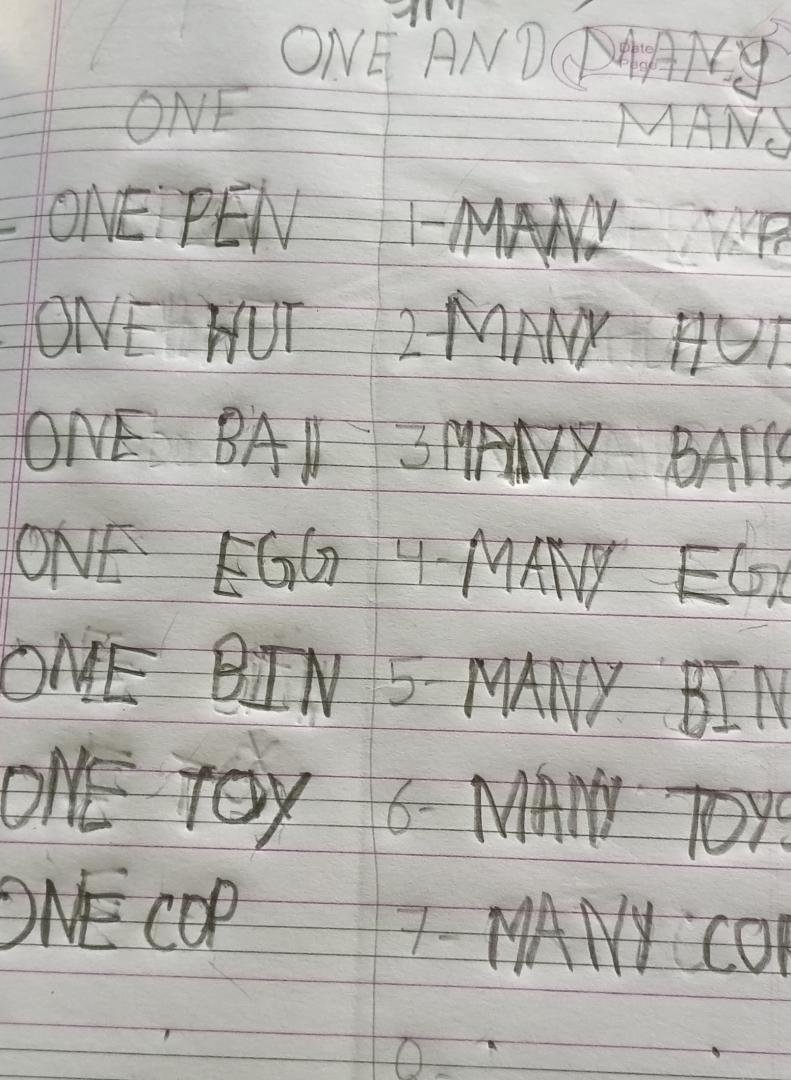 ONE AND MANY
Date
Page
ONE MANY
ONE PEN 1- MANY
ONE HUT 2- MANY HUT
ONE BAll 3 MANY BAllS
ONE EGG 4- MANY EG
ONE BIN 5- MANY BIN
ONE TOY 6- MANY TOYS
ONE COP 7- MANY COP